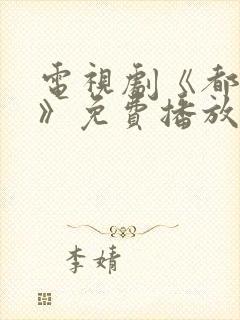 電視劇《都
》免費播放
李婧